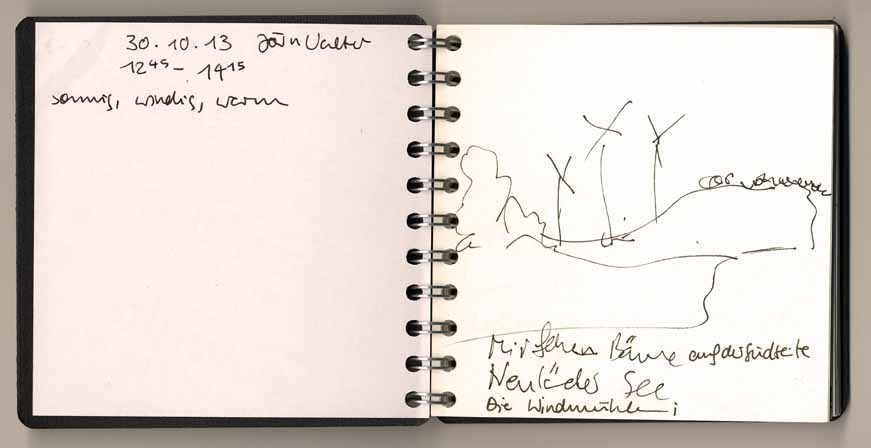 30.10.13 Jörn Valter
12⁴⁵ - 14¹⁵
sonnig, windig, warm
Wir sehen Bäume auf der Südseite
Neulädes See
Die Windmühlen